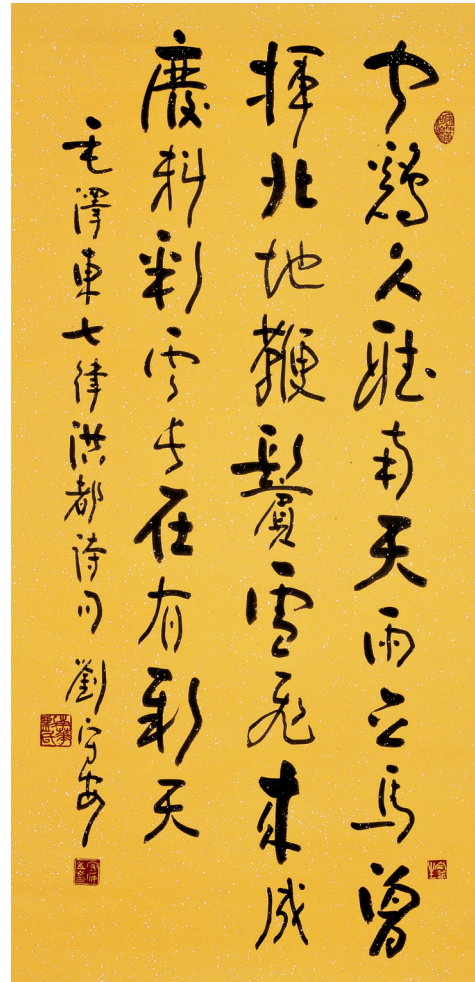 聞鷄久聽南天雨立馬曾
揮北地鞭鬢雪飛來成
廢料彩雲長在有新天
毛澤東七律洪都詩句 劉守安